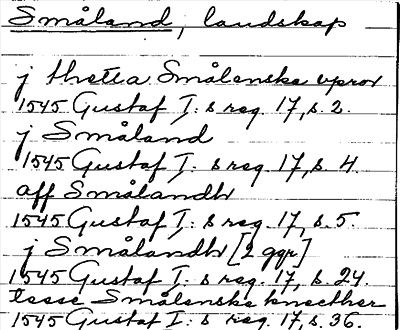 Småland, landskap
j thetta Smålenske vpror
1545 Gustaf I: s reg. 17, s. 2.
j Småland
1545 Gustaf I: s reg. 17, s. 4.
aff Smålandh
1545 Gustaf I: s reg. 17, s. 5.
j Smålandh [2 ggr]
1545 Gustaf I: s reg. 17, s. 24.
tesse Smålenske knecther
1545 Gustaf I: s reg. 17, s. 36.